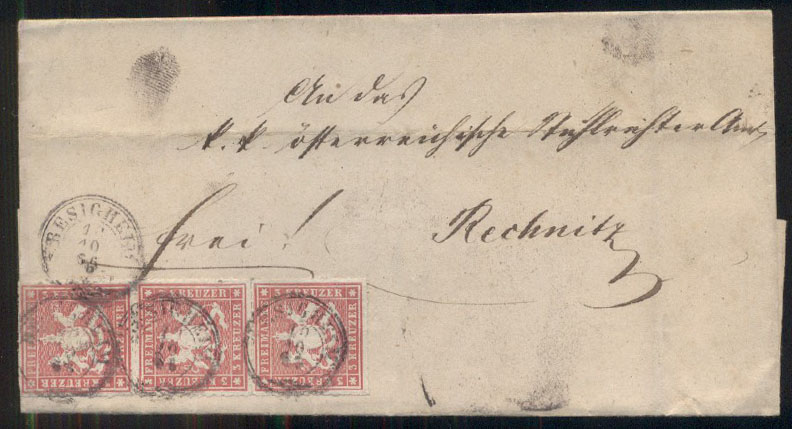 An das
k. k. österreichische Stuhlrichter Amt
frei!
Rechnitz
BESIGHEIM
10
66
KREUZER
FREIMARKE
3 KREUZER
KREUZER
FREIMARKE
3 KREUZER
KREUZER
FREIMARKE
3 KREUZER